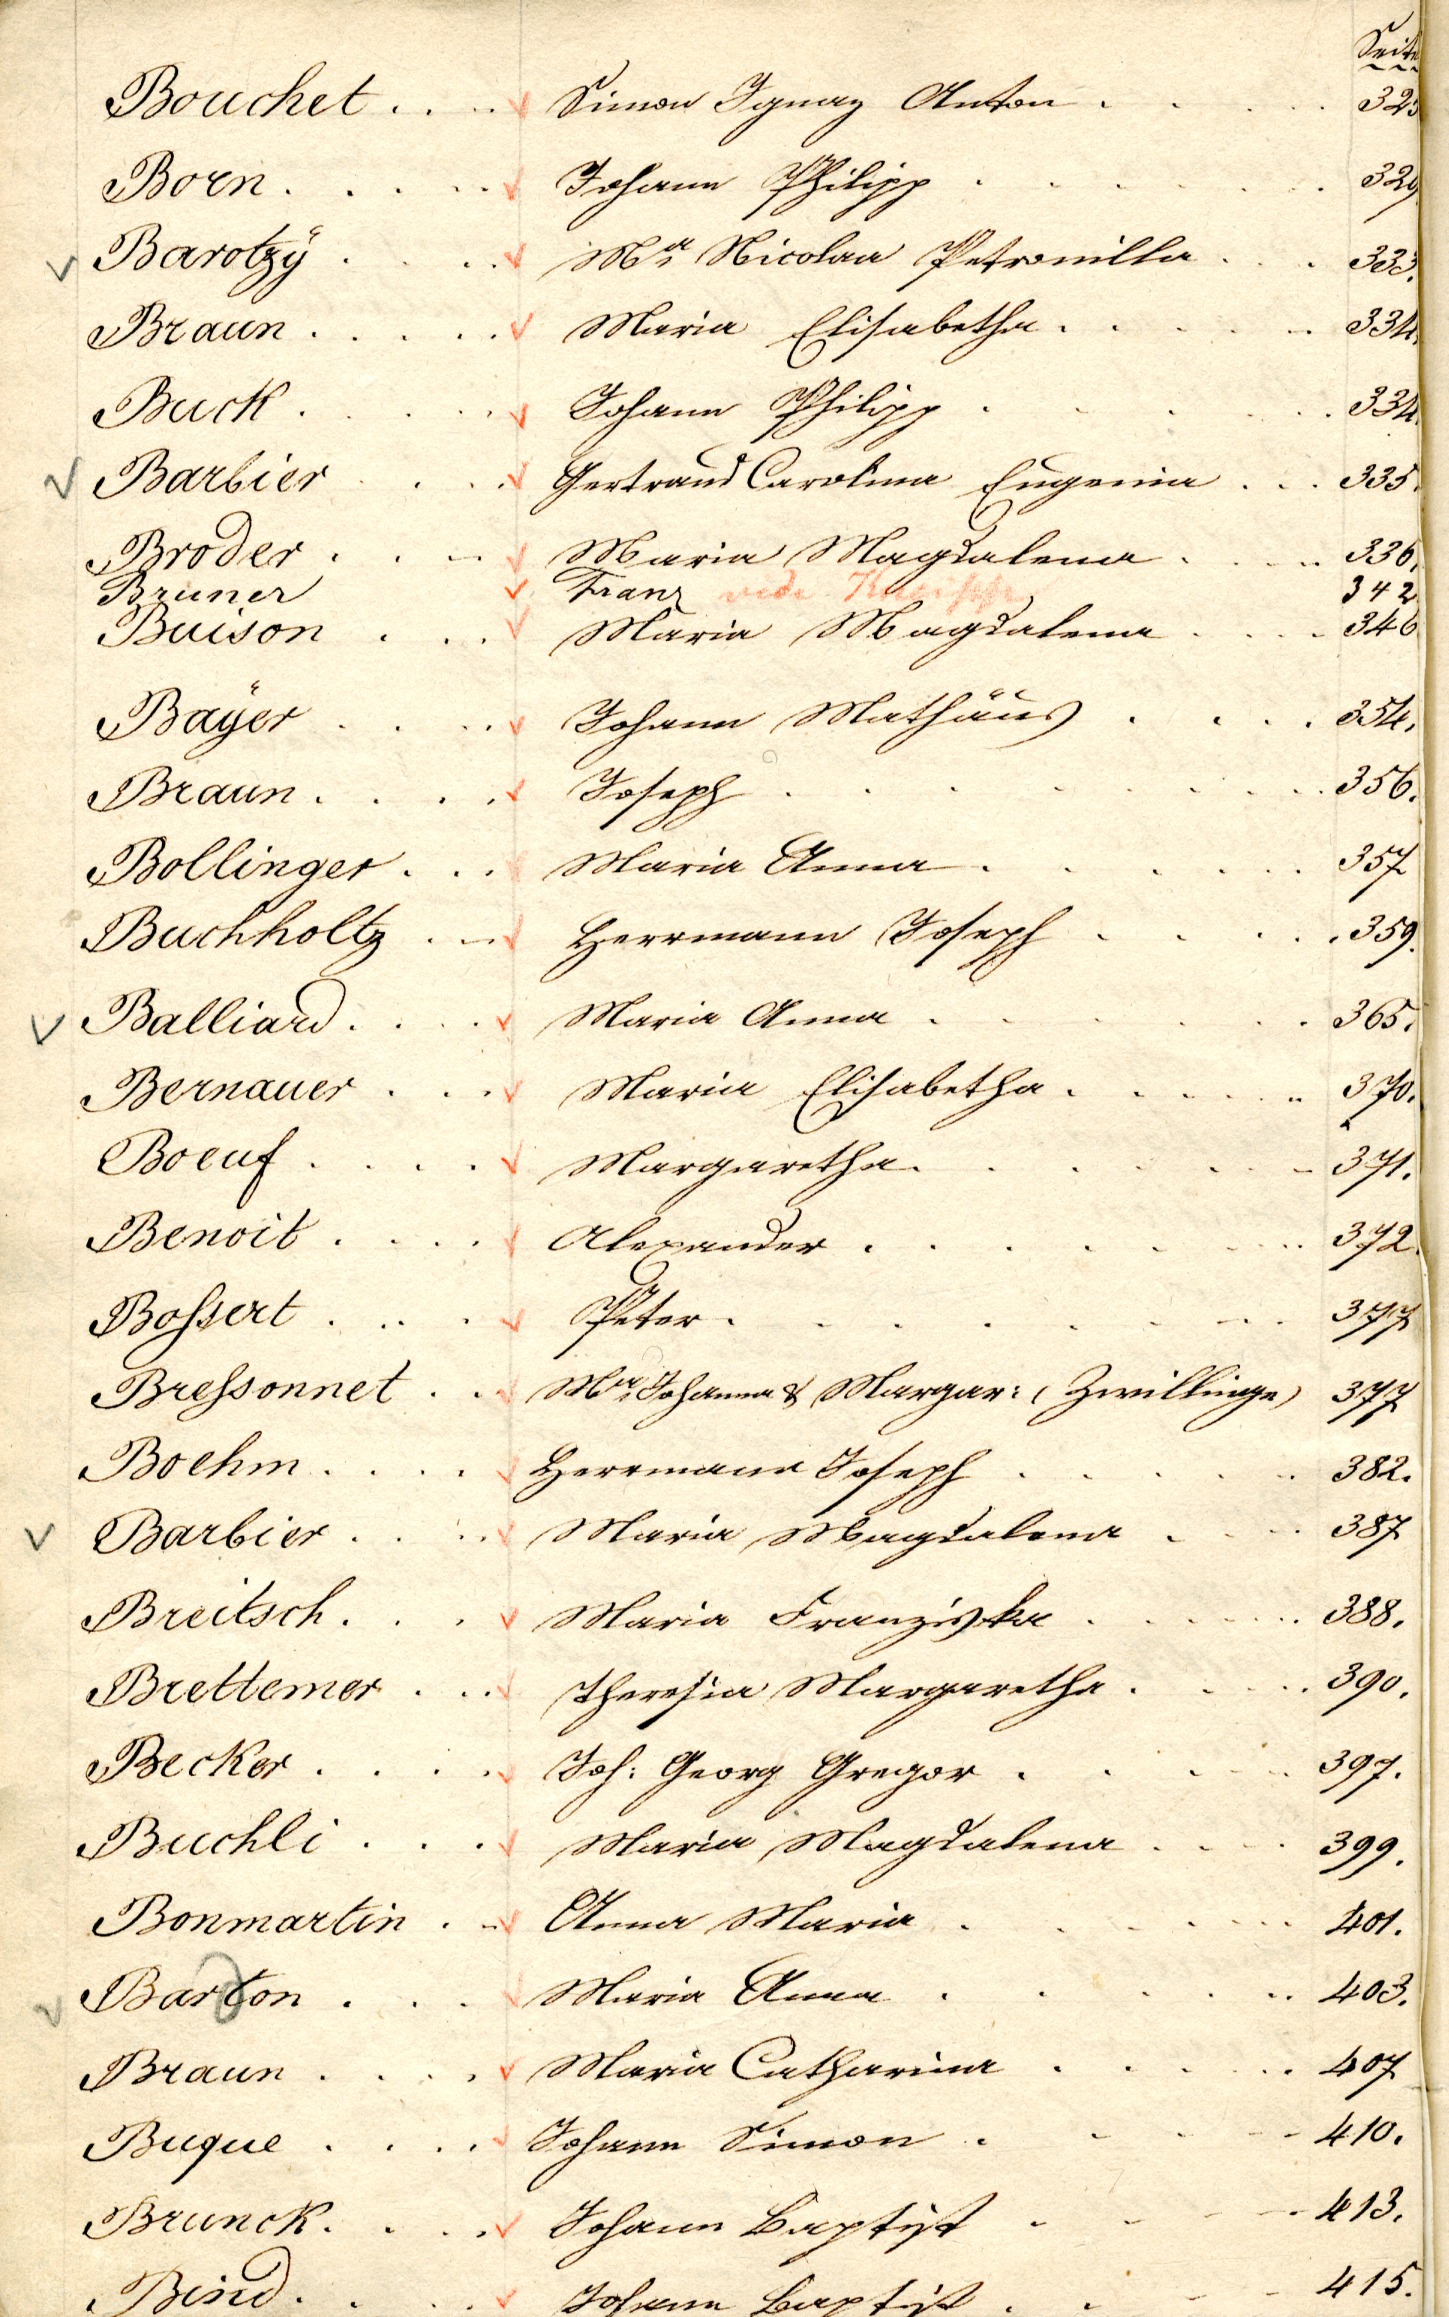 Seite
Bouchet . . . Simon Ignaz Anton . . . 325
Born . . . Johann Philipp . . . 329
Barotzÿ . . . Mᵃ Nicolaa Petronilla . . . 333.
Braun . . . Maria Elisabetha . . . 334.
Buck . . . Johann Philipp . . . 334
Barbier . . . Gertraud Carolina Eugenia . . . 335.
Broder . . . Maria Magdalena . . . 336.
Bruner Franz vide 342
Buison . . . Maria Magdalena . . . 346
Baÿer . . . Johann Mathäus . . . 354.
Braun . . . Joseph . . . 356.
Bollinger . . . Maria Anna . . . 357
Buchholtz . . . Herrmann Joseph . . . 359.
Balliard . . . Maria Anna . . . 365.
Bernauer . . . Maria Elisabetha . . . 370.
Boeuf . . . Margaretha . . . 371.
Benoit . . . Alexander . . . 372.
Boſsert . . . Peter . . . 377
Breſsonnet . . Mᵃ Johanna & Margar: (Zwillinge) 377
Boehm . . . Herrmann Joseph . . . 382.
Barbier . . . Maria Magdalena . . . 387
Breitsch . . . Maria Franziska . . . 388.
Brettemer . . . Theresia Margaretha . . . 390.
Becker . . . Joh: Georg Gregor . . . 397.
Buchli . . . Maria Magdalena . . . 399.
Bonmartin . . Anna Maria . . . 401.
Barton . . . Maria Anna . . . 403.
Braun . . . Maria Catharina . . . 407
Buque . . . Johann Simon . . . 410.
Brunck . . . Johann Baptist . . . 413.
Bind . . . Johann Baptist . . . 415.